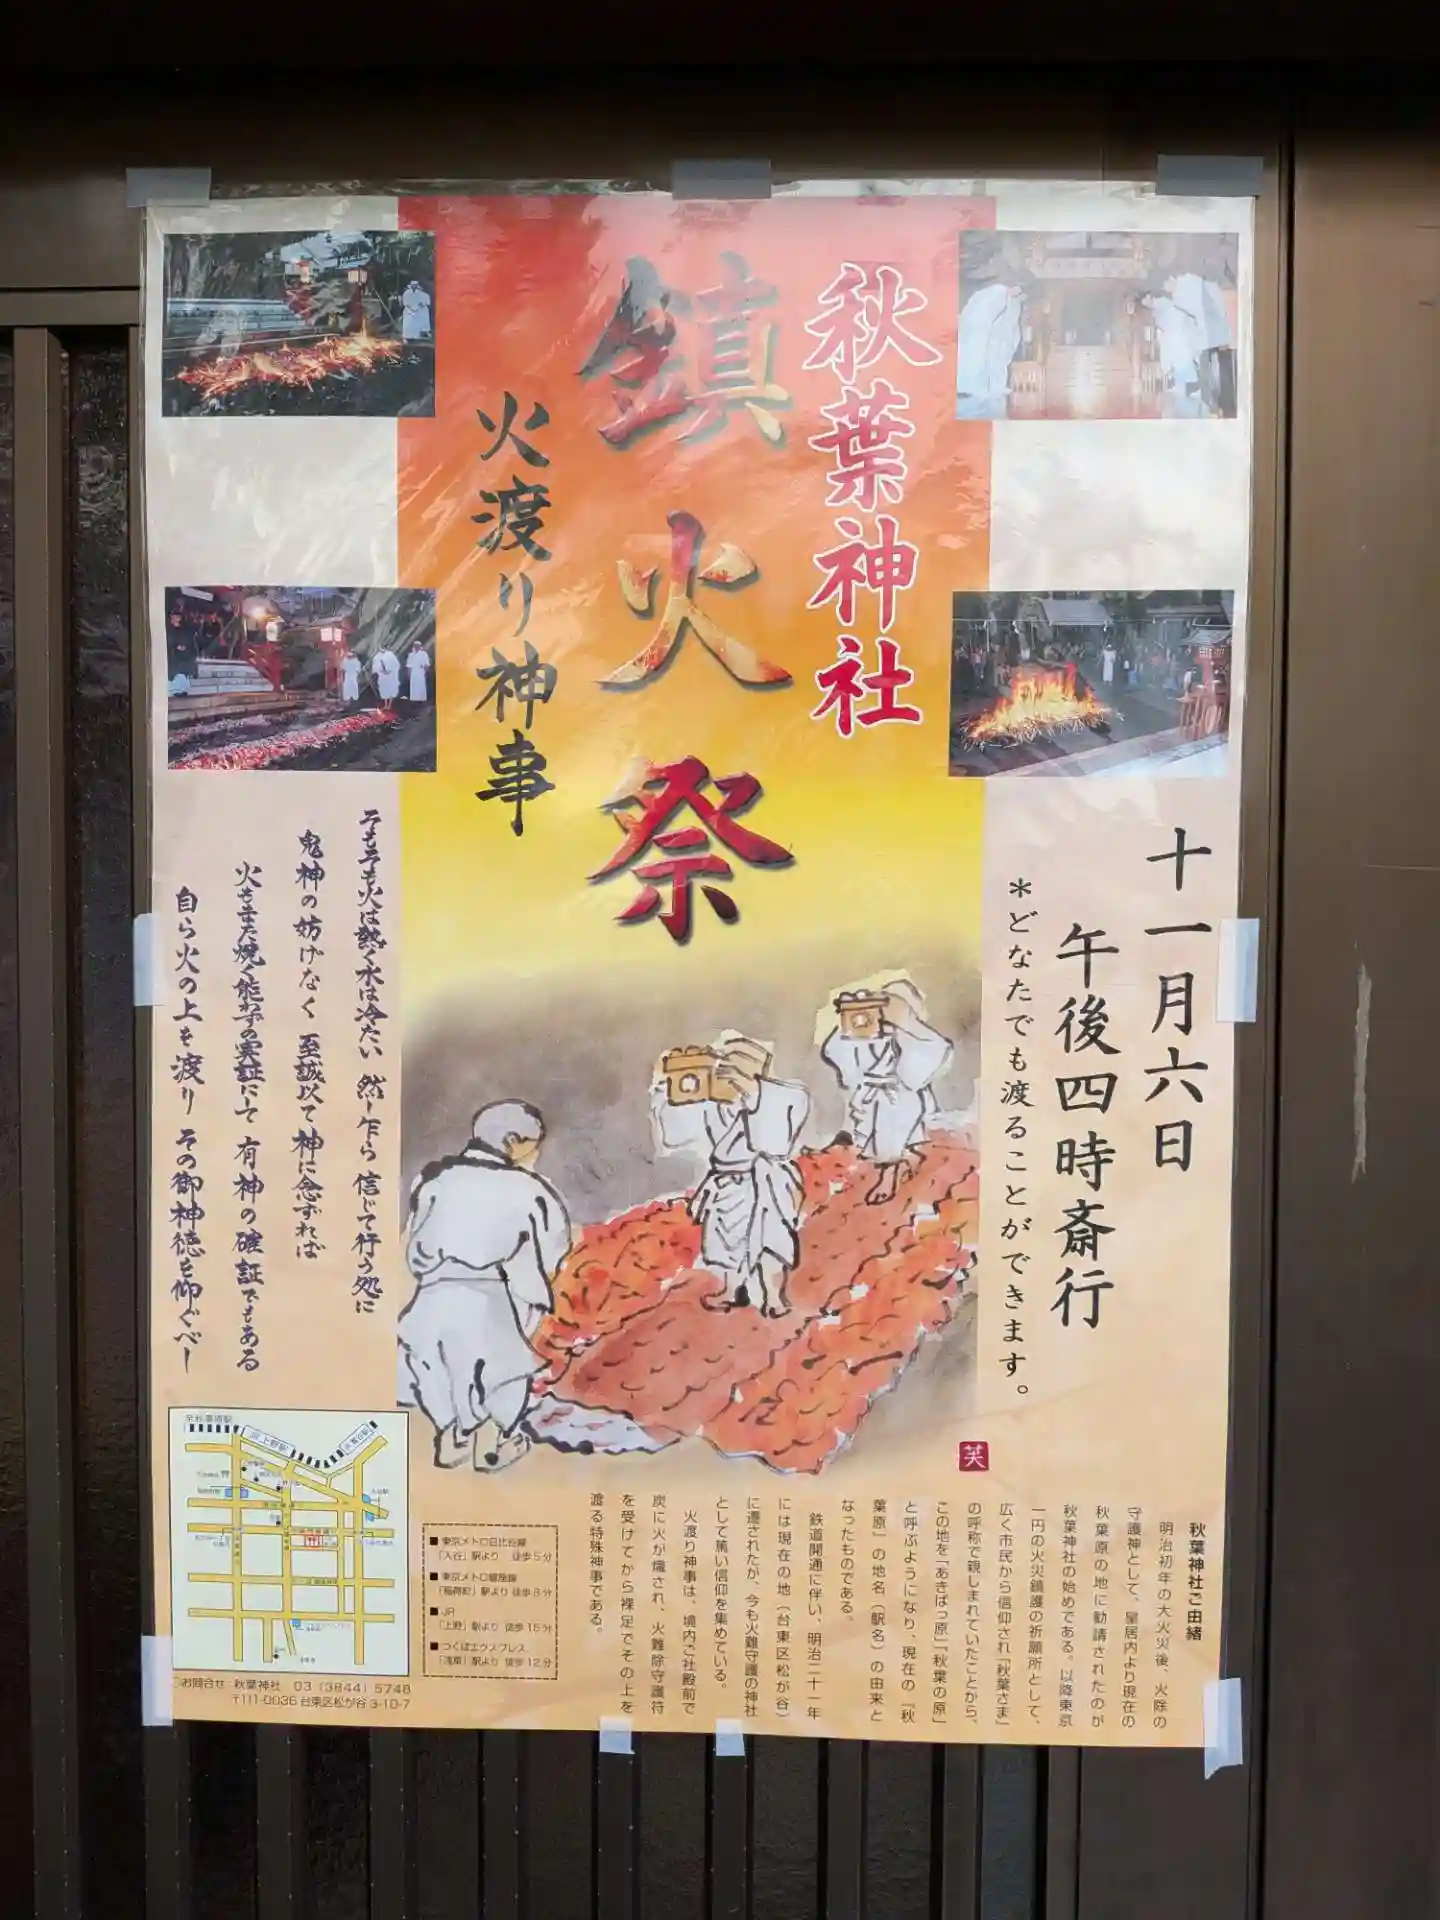 秋葉神社
鎮火祭
火渡り神事
十一月六日
午後四時斎行
＊どなたでも渡ることができます。
そもそも火は熱く水は冷たい 然し乍ら 信じて行う処に
鬼神の妨げなく 至誠以て神に念ずれば
火もまた焼く能わずの実証にして 有神の確証でもある
自ら火の上を渡り その御神徳を仰ぐべし
芙
秋葉神社ご由緒
明治初年の大火災後、火除の
守護神として、皇居内より現在の
秋葉原の地に勧請されたのが
秋葉神社の始めである。以降東京
一円の火災鎮護の祈願所として、
広く市民から信仰され「秋葉さま」
の呼称で親しまれていたことから、
この地を「あきばっ原」「秋葉の原」
と呼ぶようになり、現在の「秋
葉原」の地名（駅名）の由来と
なったものである。
鉄道開通に伴い、明治二十一年
には現在の地（台東区松が谷）
に遷されたが、今も火難守護の神社
として篤い信仰を集めている。
火渡り神事は、境内ご社殿前で
炭に火が熾され、火難除守護符
を受けてから裸足でその上を
渡る特殊神事である。
■ 東京メトロ日比谷線
「入谷」駅より 徒歩5分
■ 東京メトロ銀座線
「稲荷町」駅より 徒歩8分
■ JR
「上野」駅より 徒歩15分
■ つくばエクスプレス
「浅草」駅より 徒歩12分
至秋葉原駅
JR上野駅
ご お問合せ 秋葉神社 03（3844）5748
〒111-0036 台東区松が谷 3-10-7